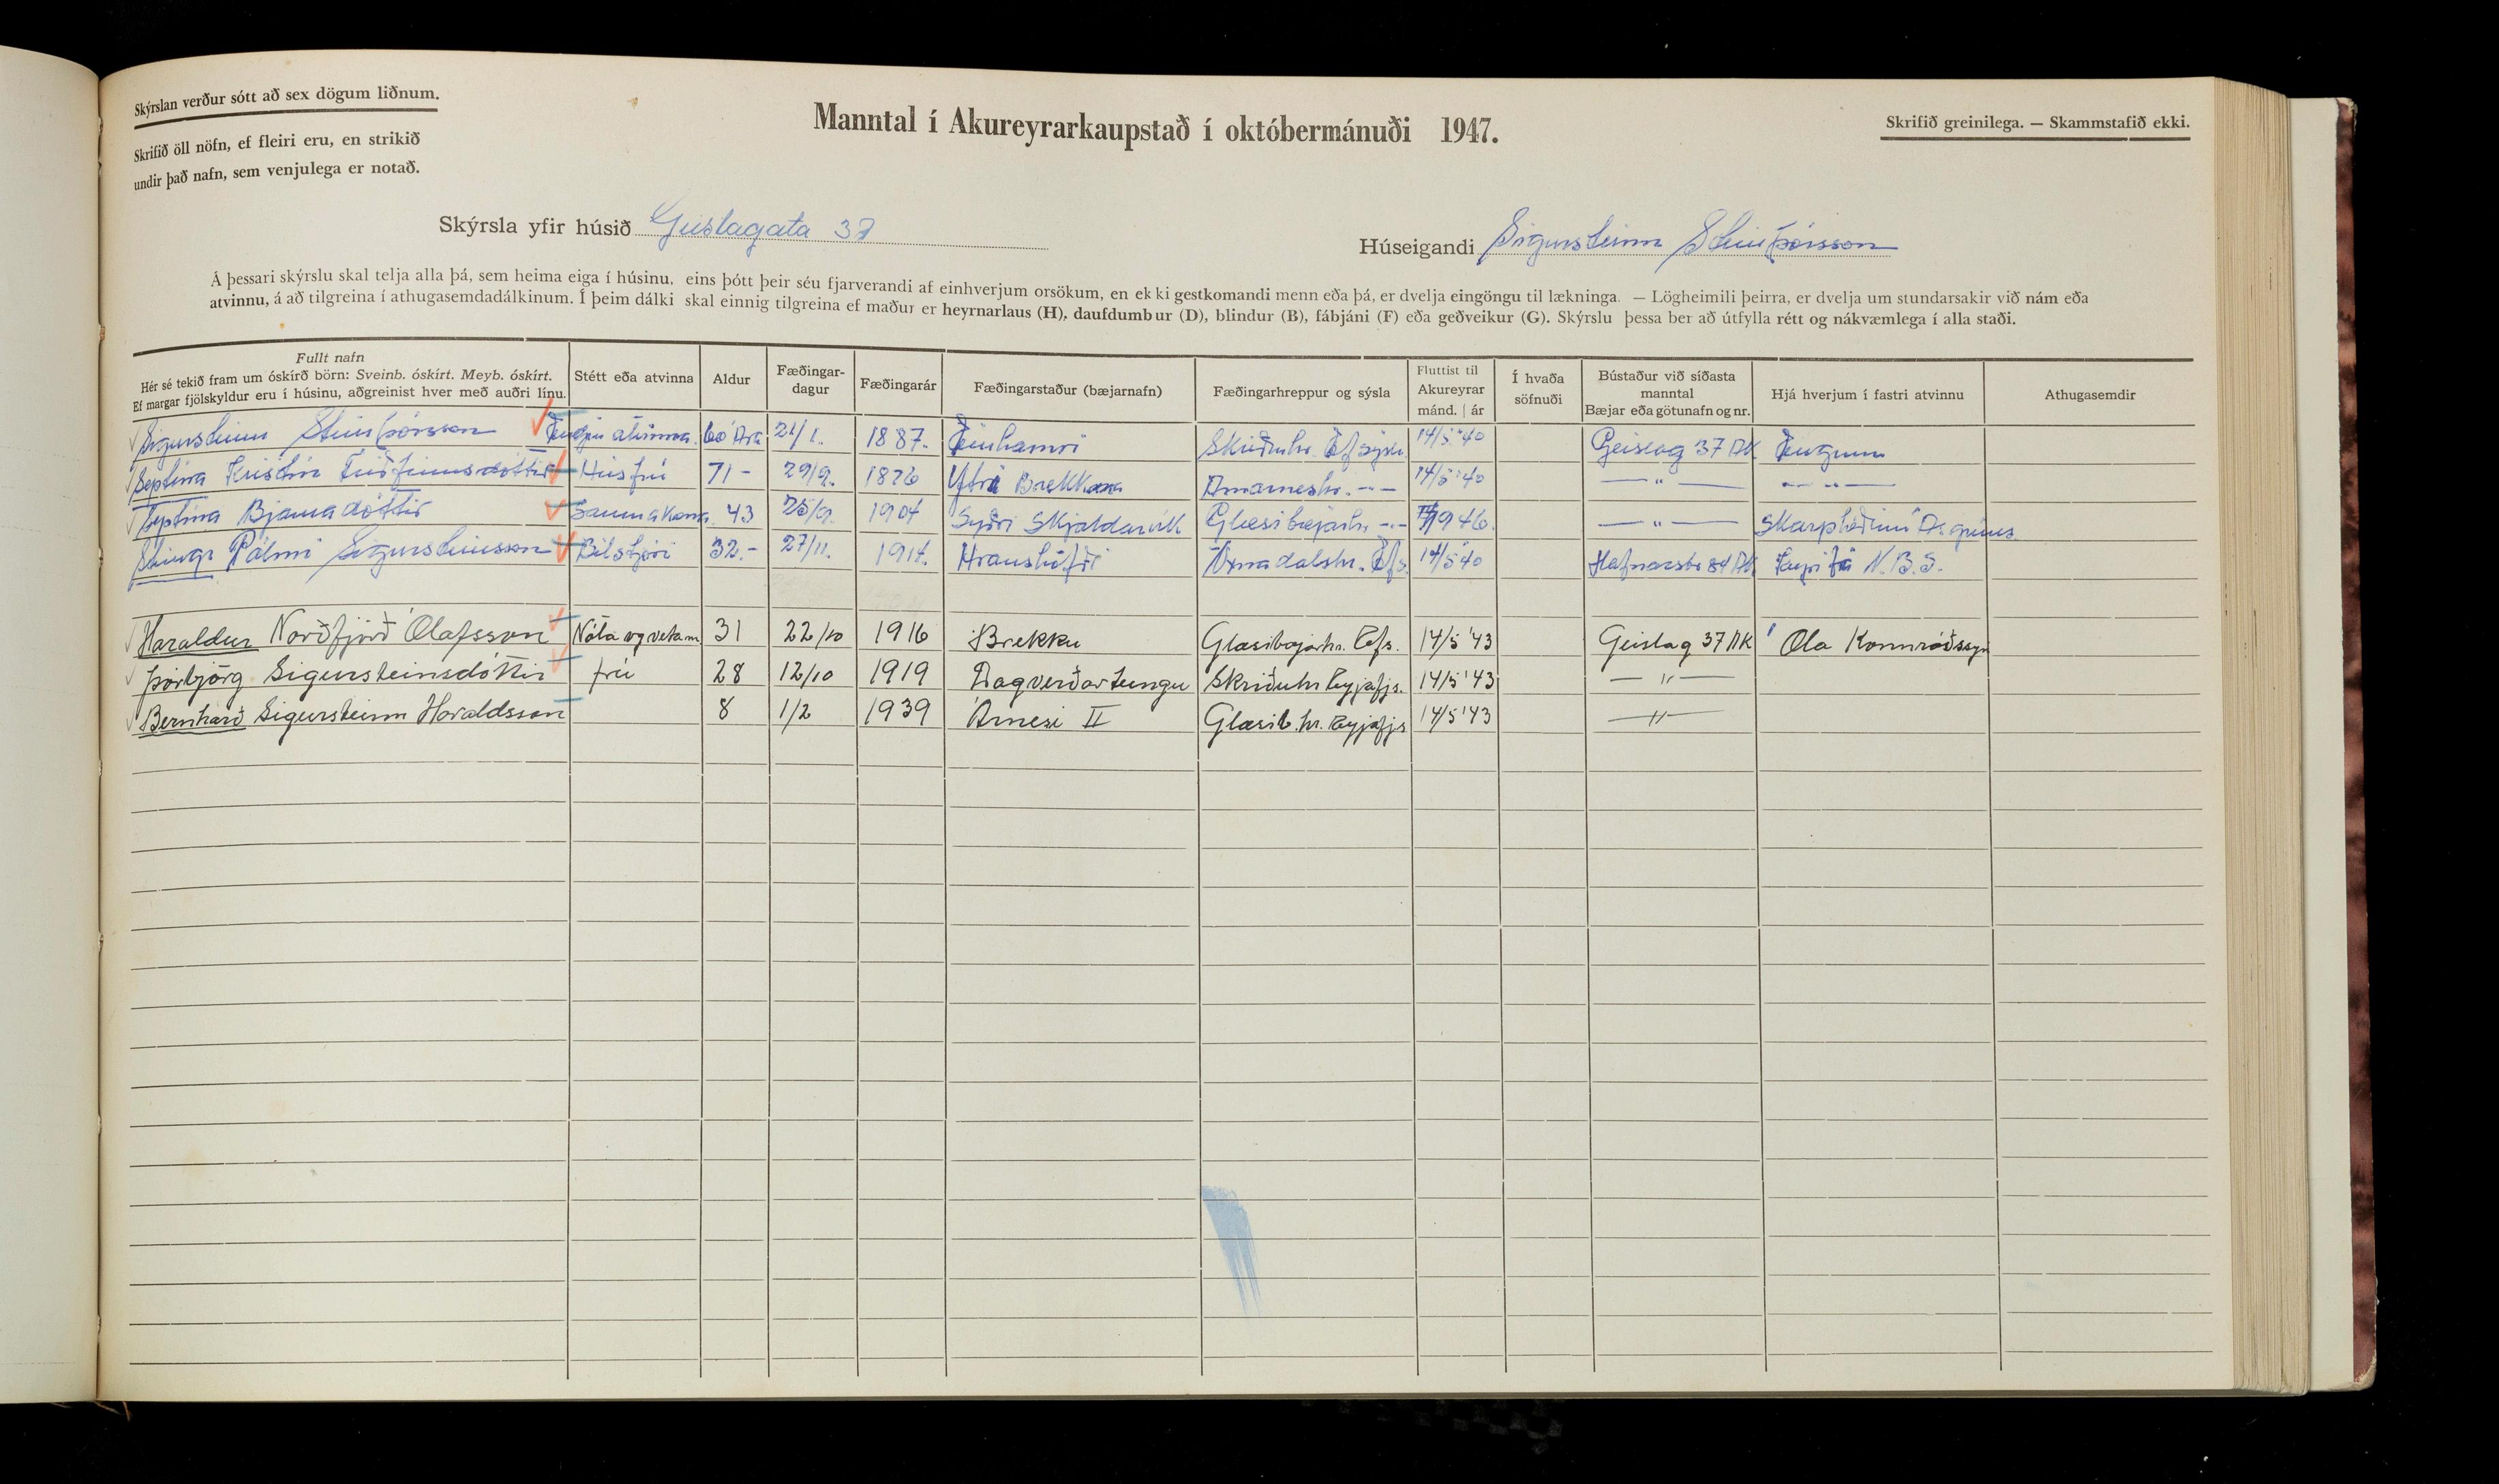 Skýrslan verður sótt að sex dögum liðnum.
Skrifið öll nöfn, ef fleiri eru, en strikið
undir það nafn, sem venjulega er notað.
Manntal í Akureyrarkaupstað í októbermánuði 1947.
Skrifið greinilega. — Skammstafið ekki.
Skýrsla yfir húsið Geislagata 37
Húseigandi Sigursteinn Steinþórsson
Á þessari skýrslu skal telja alla þá, sem heima eiga í húsinu, eins þótt þeir séu fjarverandi af einhverjum orsökum, en ekki gestkomandi menn eða þá, er dvelja eingöngu til lækninga. — Lögheimili þeirra, er dvelja um stundarsakir við nám eða
atvinnu, á að tilgreina í athugasemdadálkinum. Í þeim dálki skal einnig tilgreina ef maður er heyrnarlaus (H), daufdumbur (D), blindur (B), fábjáni (F) eða geðveikur (G). Skýrslu þessa ber að útfylla rétt og nákvæmlega í alla staði.
Fullt nafn
Hér sé tekið fram um óskírð börn: Sveinb. óskírt. Meyb. óskírt.
Ef margar fjölskyldur eru í húsinu, aðgreinist hver með auðri línu.
Stétt eða atvinna
Aldur
Fæðingar-
dagur
Fæðingarár
Fæðingarstaður (bæjarnafn)
Fæðingarhreppur og sýsla
Fluttist til
Akureyrar
mánd. | ár
Í hvaða
söfnuði
Bústaður við síðasta
manntal
Bæjar eða götunafn og nr.
Hjá hverjum í fastri atvinnu
Athugasemdir
Sigursteinn Steinþórsson Engin atvinna. 60 Ára 21/1. 1887. Skriðuhr. Ef sýslu 14/5 '40 Geislag 37 AK Engum
Septína Kristín Friðfinnsdóttir Húsfrú 71 - 29/9. 1876 Ytri Brekkum Arnarneshr. -"- 14/5 '40 — " — — " —
Septína Bjarnadóttir Saumakona. 43 25/9. 1904 Syðri Skjaldarvík Glæsibæjarhr. -"- 1946. — " — Skarphéðinn Ásgeirss.
Steingr Pálmi Sigursteinsson Bílstjóri 32.- 27/11. 1914. Hraunshöfði Öxnadalshr. Efs. 14/5 '40 Hafnarstr 84 AK
Haraldur Norðfjörð Ólafsson Nóta og netam 31 22/10 1916 Brekku Glæsibæjarhr. Eyfs. 14/5 '43 Geislag 37 AK Óla Konnráðssyni
Þorbjörg Sigursteinsdóttir frú 28 12/10 1919 Dagverðartungu Skriðuhr Eyjafjs. 14/5 '43 — " —
Bernharð Sigursteinn Haraldsson 8 1/2 1939 Árnesi II Glæsib.hr. Eyjafjs 14/5 '43 — " —